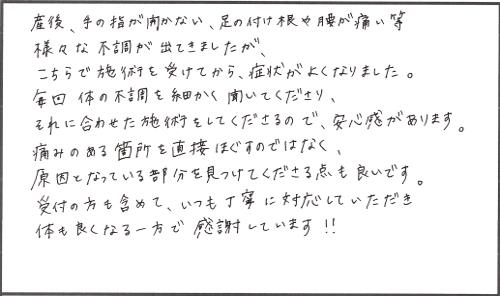 産後、手の指が開かない、足の付け根や腰が痛い等
様々な不調が出てきましたが、
こちらで施術を受けてから、症状がよくなりました。
毎回 体の不調を細かく聞いてくださり、
それに合わせた施術をしてくださるので、安心感があります。
痛みのある箇所を直接ほぐすのではなく、
原因となっている部分を見つけてくださる点も良いです。
受付の方も含めて、いつも丁寧に対応していただき
体も良くなる一方で感謝しています!!